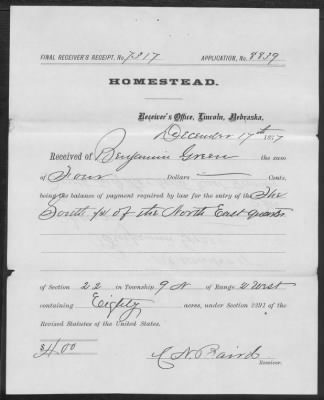 FINAL RECEIVER'S RECEIPT, No. 7317 APPLICATION, No. 8839
HOMESTEAD.
Receiver's Office, Lincoln, Nebraska,
December 17th 1877
Received of Benjamin Green the sum
of Four Dollars — Cents,
being the balance of payment required by law for the entry of The
South ½ of the North East quarter
of Section 22 in Township 9 N of Range 2 West
containing Eighty acres, under Section 2291 of the
Revised Statutes of the United States.
$4.00
C N Baird
Receiver.